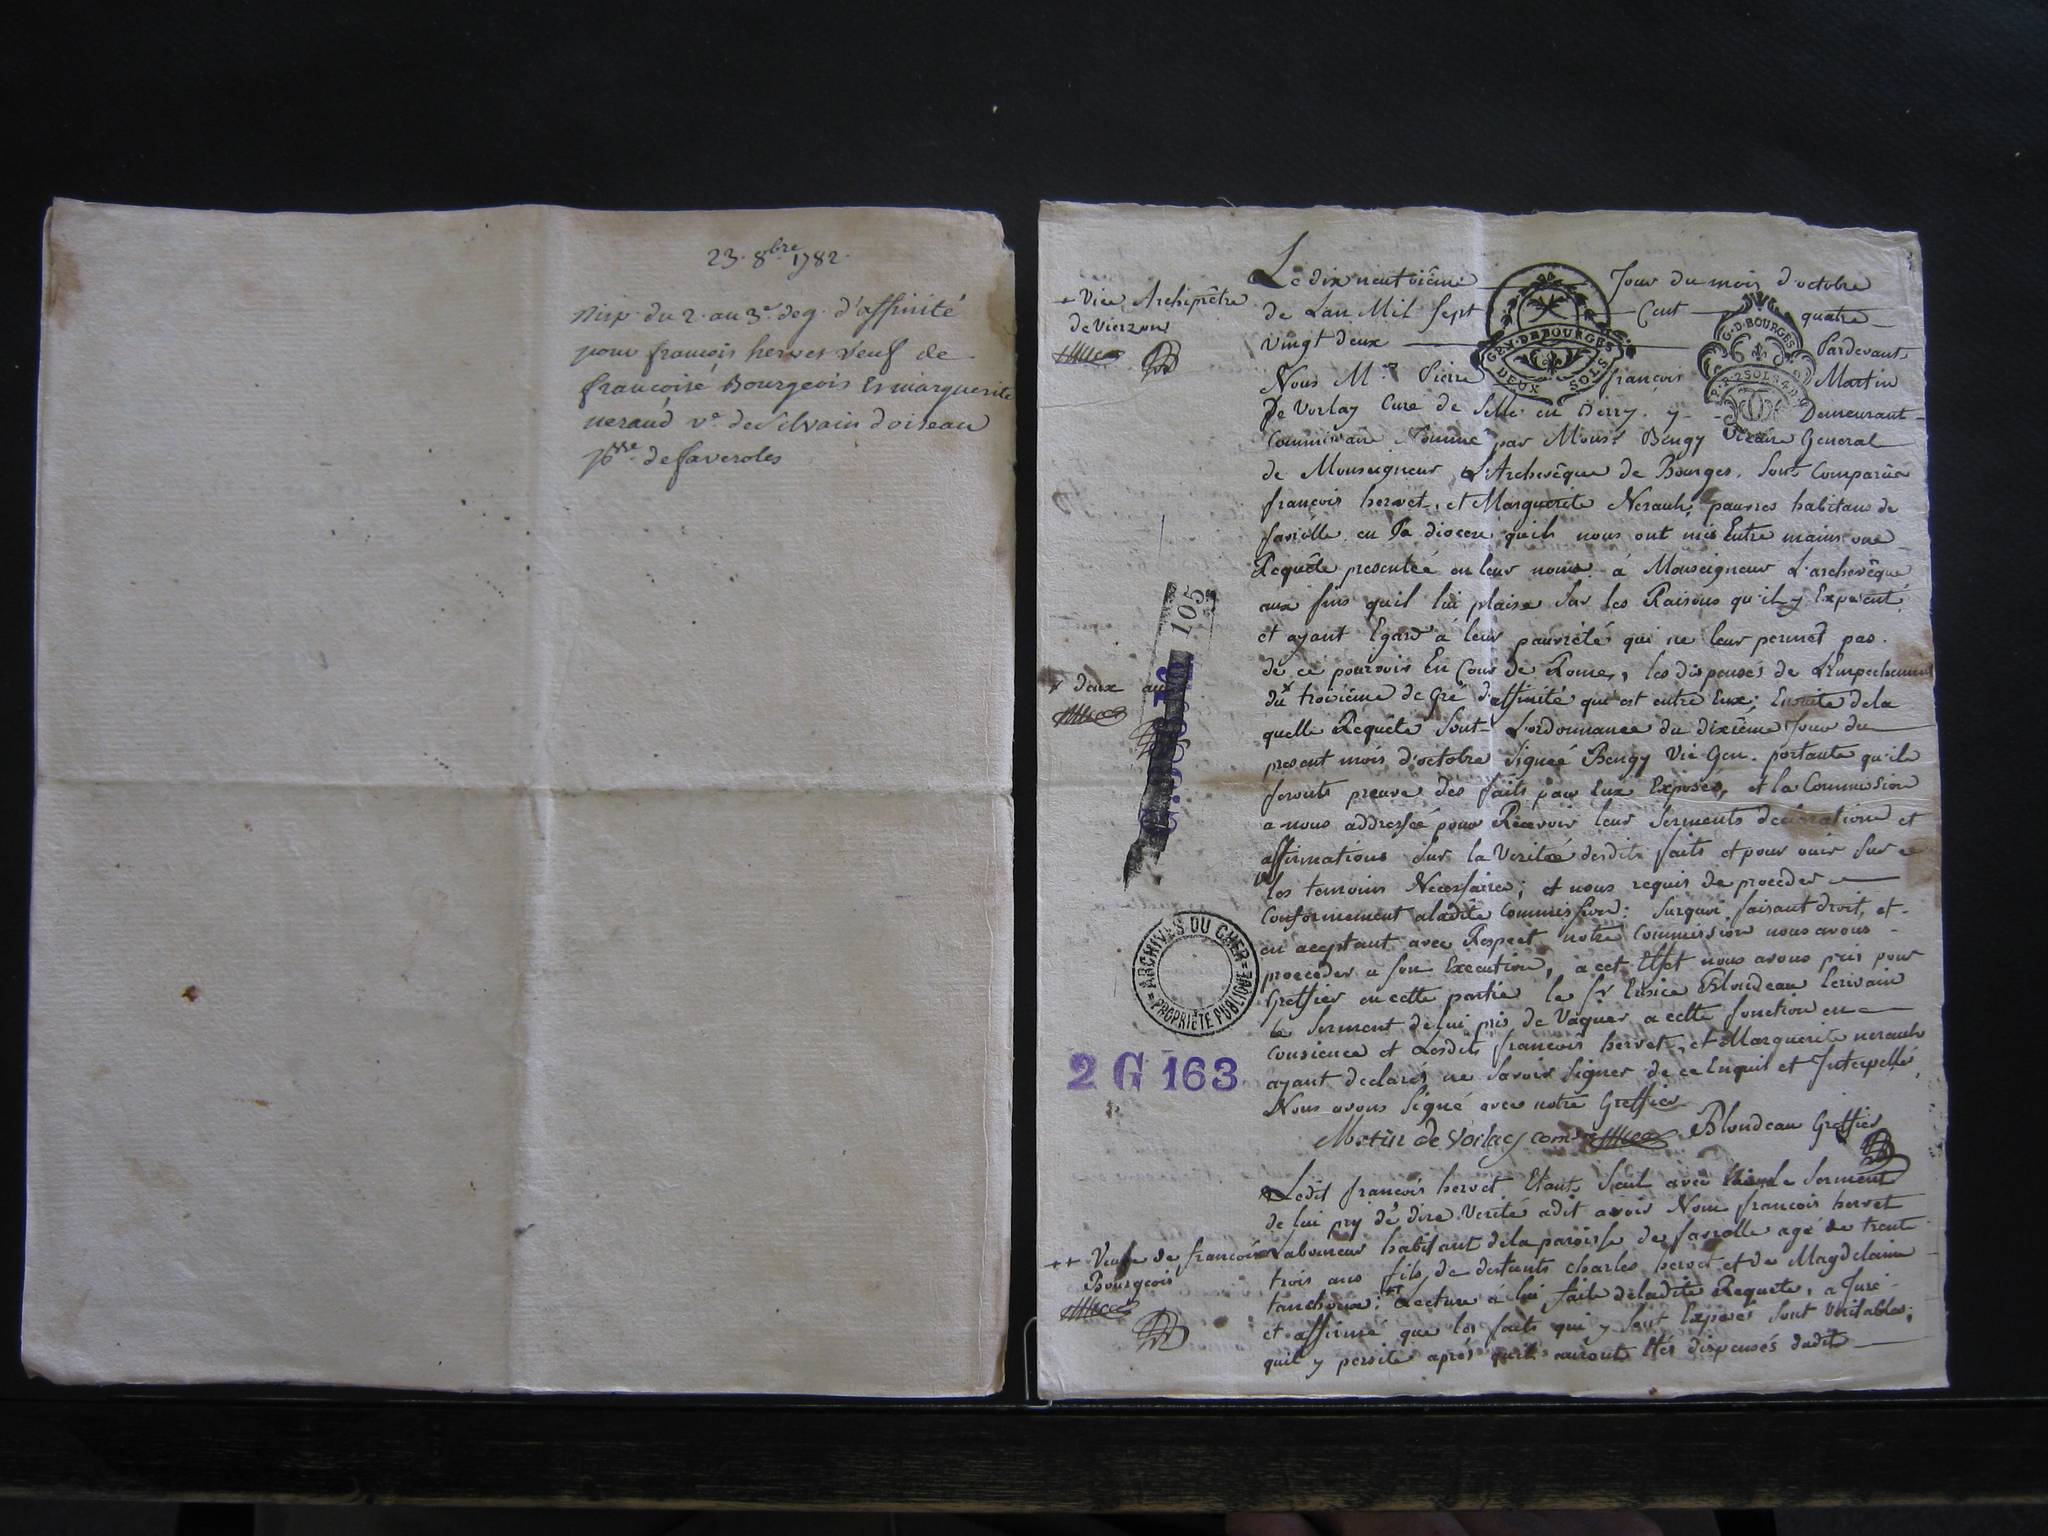 23. 8bre 1782.
Disp. du 2. au 3e deg. d'affinité
pour françois hervet veuf de
françoise Bourgeois Et marguerite
neraud ve. de Silvain doiseau
psse. de faveroles
Le dix neuvième Jour du mois d'octobre
de Lan Mil Sept Cent quatre
vingt deux Pardevant
Nous Mre Pierre françois Martin
De Vorlay Curé de Selle en Berry. y Demeurant
+ Vice Archiprêtre
de Vierzon
Commissaire Nommé par Monsr Bengy Vicaire General
de Monseigneur L'Archevêque de Bourges. Sont Comparus
françois hervet, et Marguerite Nerault, pauvres habitans de
faviolle en Ce diocese quils nous ont mis Entre mains une
Requête presentéé en leur noms à Monseigneur L'archevêque
aux fins quil lui plaise Sur les Raisons qu'il y Exposent
et ayant Egard à leur pauvrété qui ne leur permet pas
de ce pourvoir En Cour de Rome, les dispenses de L'Empechement
+ deux au
du + troisiéme de Gré d'affinité qui est entre Eux; Ensuite de la
quelle Requête Sont L'ordonnance du dixiéme Jour du
present mois d'octobre Signéé Bengy Vic Gen. portante qu'ils
feronts preuve des faits par Eux Exposés, et la Commission
a nous addressée pour Recevoir leur Serments declarations et
affirmations Sur la Verité desdits faits et pour ouir Sur ce
les temoins Necessaires; et nous requis de proceder
Conformement a ladite Commission: Surquoi, faisant droit, et
en aceptant avec Respect notre Commission nous avons
proceder a son Execution, a cet Effet nous avons pris pour
Greffier en cette partie le Sr Eusice Blondeau Ecrivain
le Serment de lui pris de Vaquer a cette fonction en
Consience et Lesdits françois hervet, et Marguerite nerault
ayant declarés ne Savoir Signer de ce Enquit et Interpellé
Nous avons Signé avec notre Greffier
Martin de Vorlay com Blondeau Greffier
Ledit françois hervet Etant Seul avec le Serment
de lui pry de dire Verité adit avoir Nom françois hervet
++ Veuf de françoise
Bourgeois
Laboureur habitant dela paroisse de faviolle agé de trente
trois ans fils de defunts charles hervet et de Magdelaine
tancheux; Lecture a lui faite deladite Requete, a Juré
et affirmé que les faits qui y Sont Exposés Sont Veritables;
quil y persite aprés quil auront Etés dispensés dudit
GEN. DE BOURGES
DEUX SOLS
G. D. BOURGES
105
ARCHIVES DU CHER
PROPRIÉTÉ PUBLIQUE
2 G 163